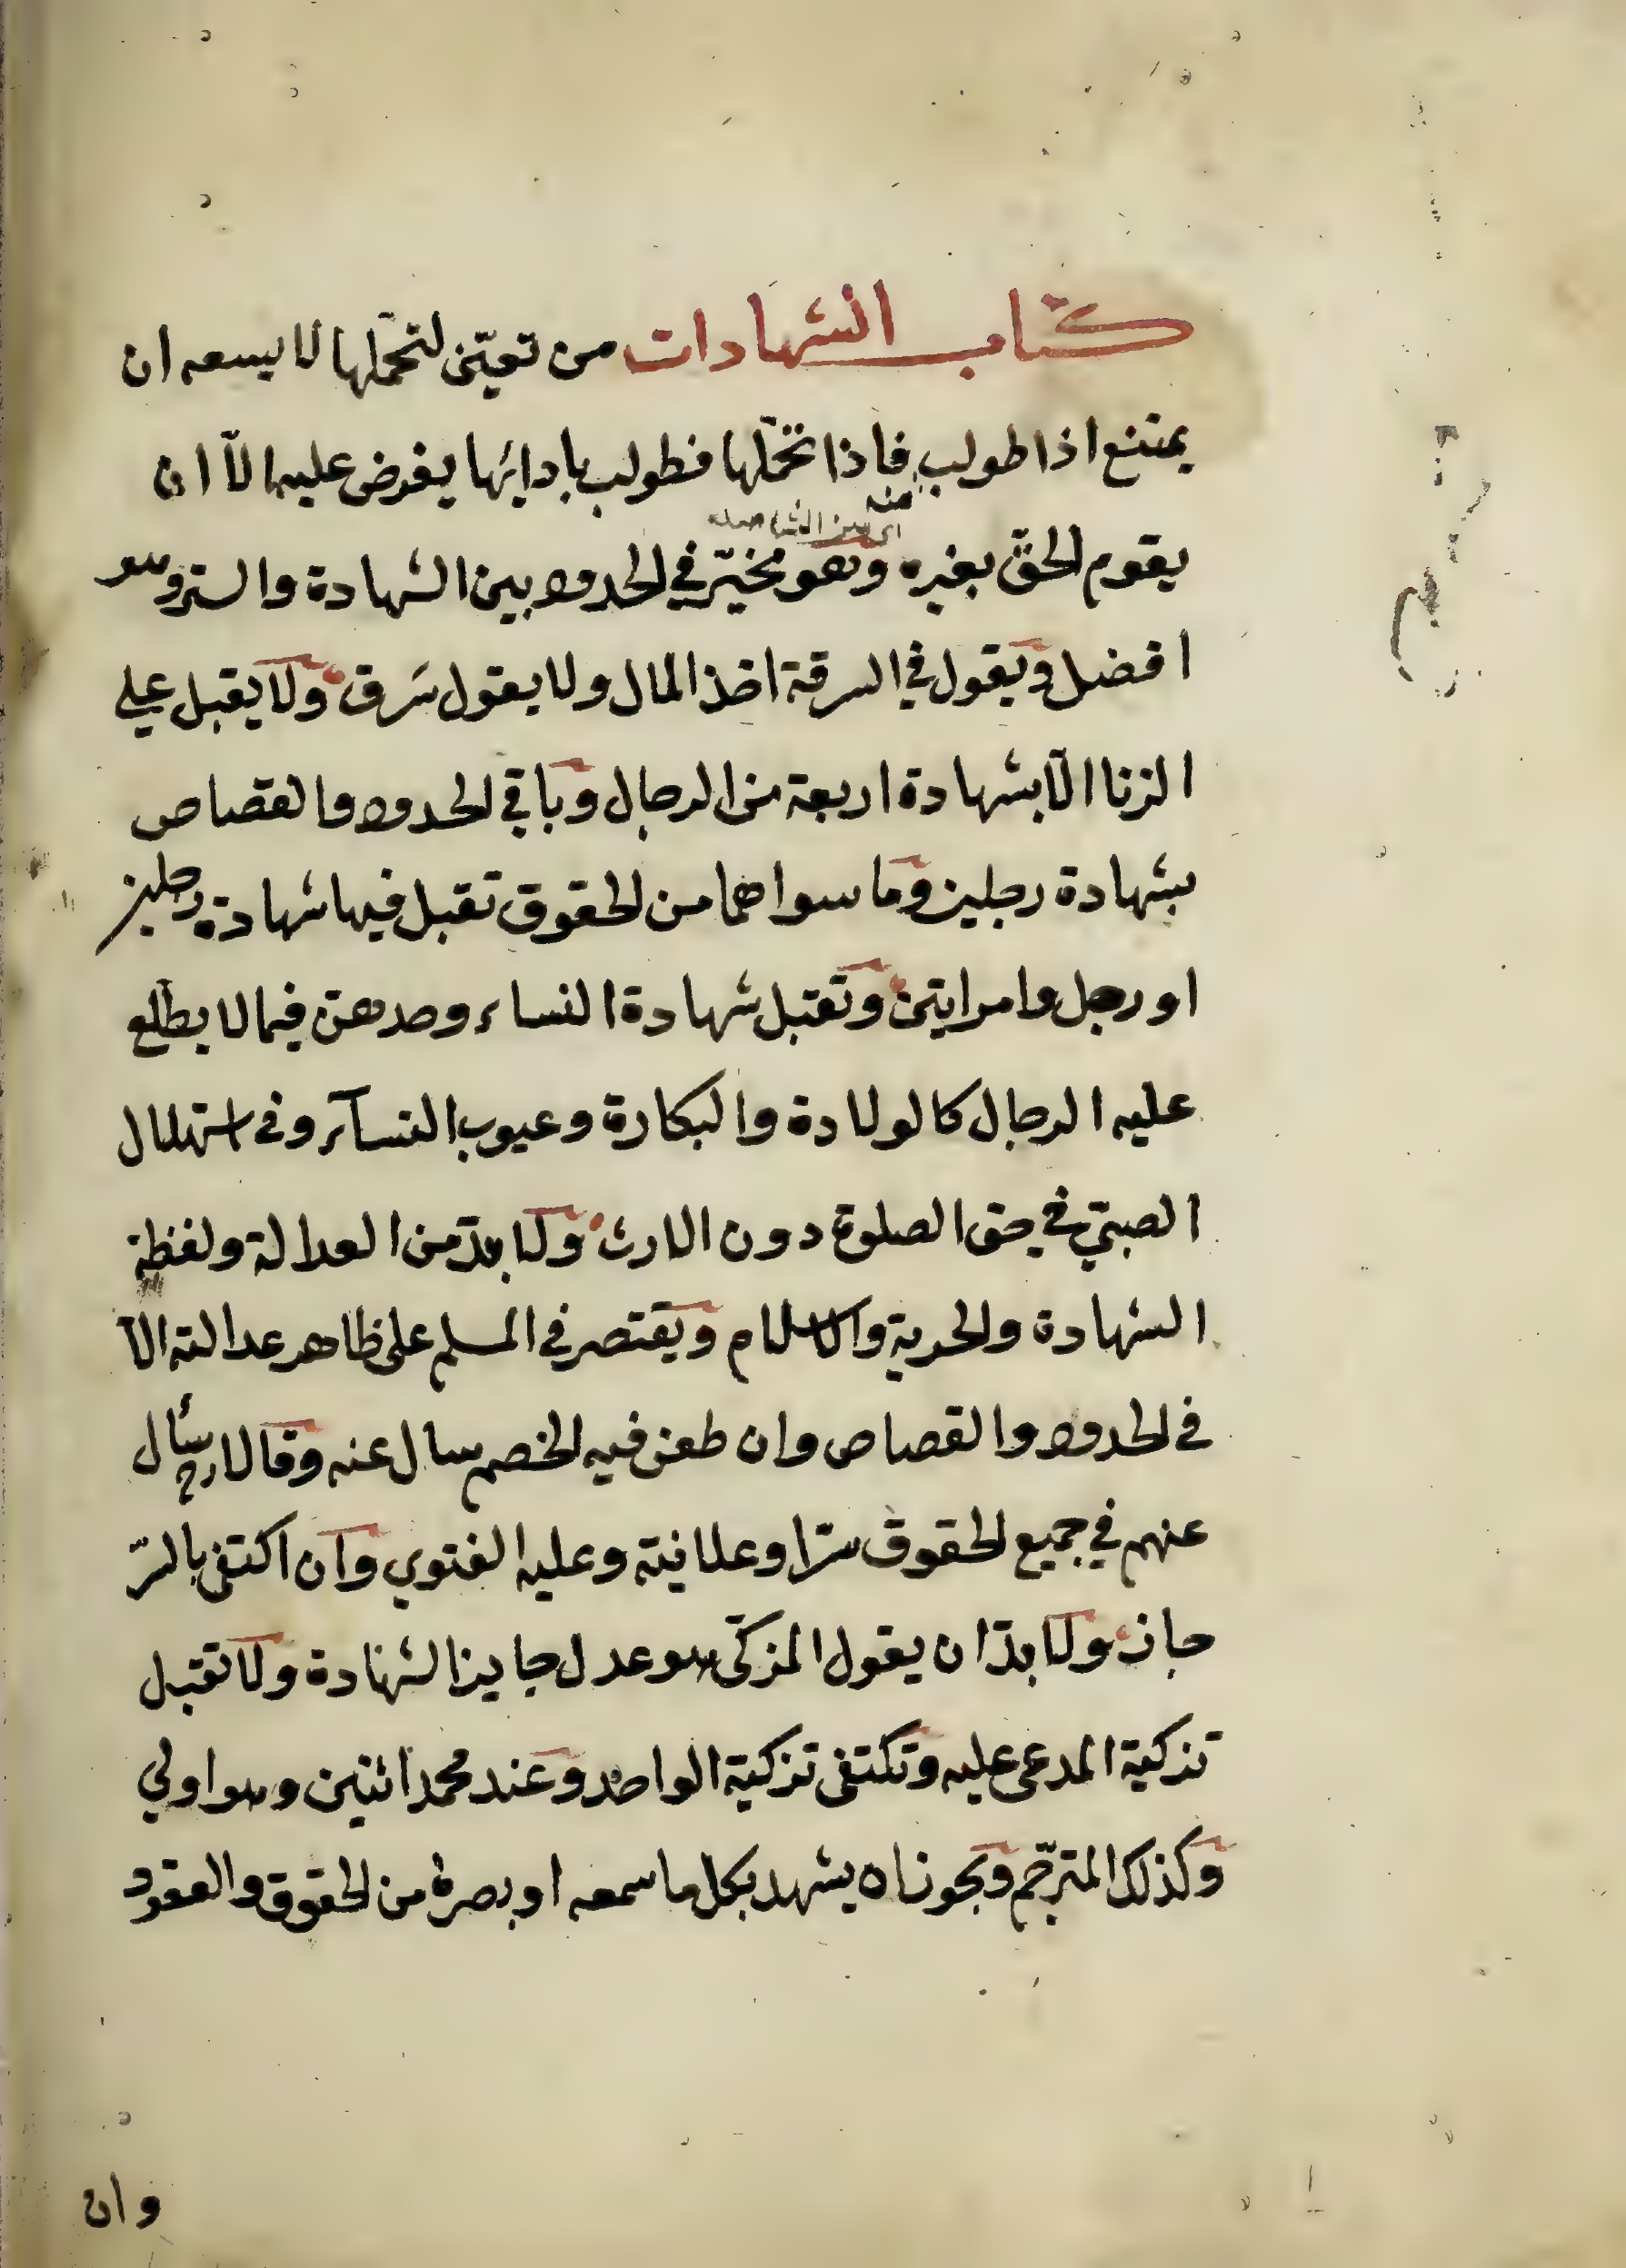 كتاب الشهادات من تعيّن لتحمّلها لا يسعه ان
يمتنع اذا طولب فاذا تحمّلها فطولب بادائها يفرض عليه الّا ان
منه
يقوم الحقّ بغيره وهو مخيّر في الحدود بين الشهادة والستر وهو
افضل ويقول في السرقة اخذ المال ولا يقول سَرق ولا يقبل علي
الزنا الّا بشهادة اربعة من الرجال وباقي الحدود والقصاص
بشهادة رجلين وما سواهما من الحقوق تقبل فيها شهادة رجلين
او رجل وامرايتين وتقبل شهادة النساء وحدهنّ فيما لا يطّلع
عليه الرجال كالولادة والبكارة وعيوب النسآء وفي استهلال
الصبيّ في حق الصلوة دون الارث ولا بدّ من العدالة ولفظة
الشهادة والحرية والاسلام ويقتصر في المسلم على ظاهر عدالته الّا
في الحدود والقصاص وان طعن فيه الخصم سال عنه وقالا يسأل
عنهم في جميع الحقوق سرّا وعلانية وعليه الفتوي وان اكتفى بالسرّ
جاز ولا بدّ ان يقول المزكّى هو عدل جايز الشهادة ولا تقبل
تزكية المدعى عليه وتكتفى تزكية الواحد وعند محمد اثنين وهو اولي
وكذلك المترجّم ويجوز ان يشهد بكل ما سمعه او بصره من الحقوق والعقود
وان